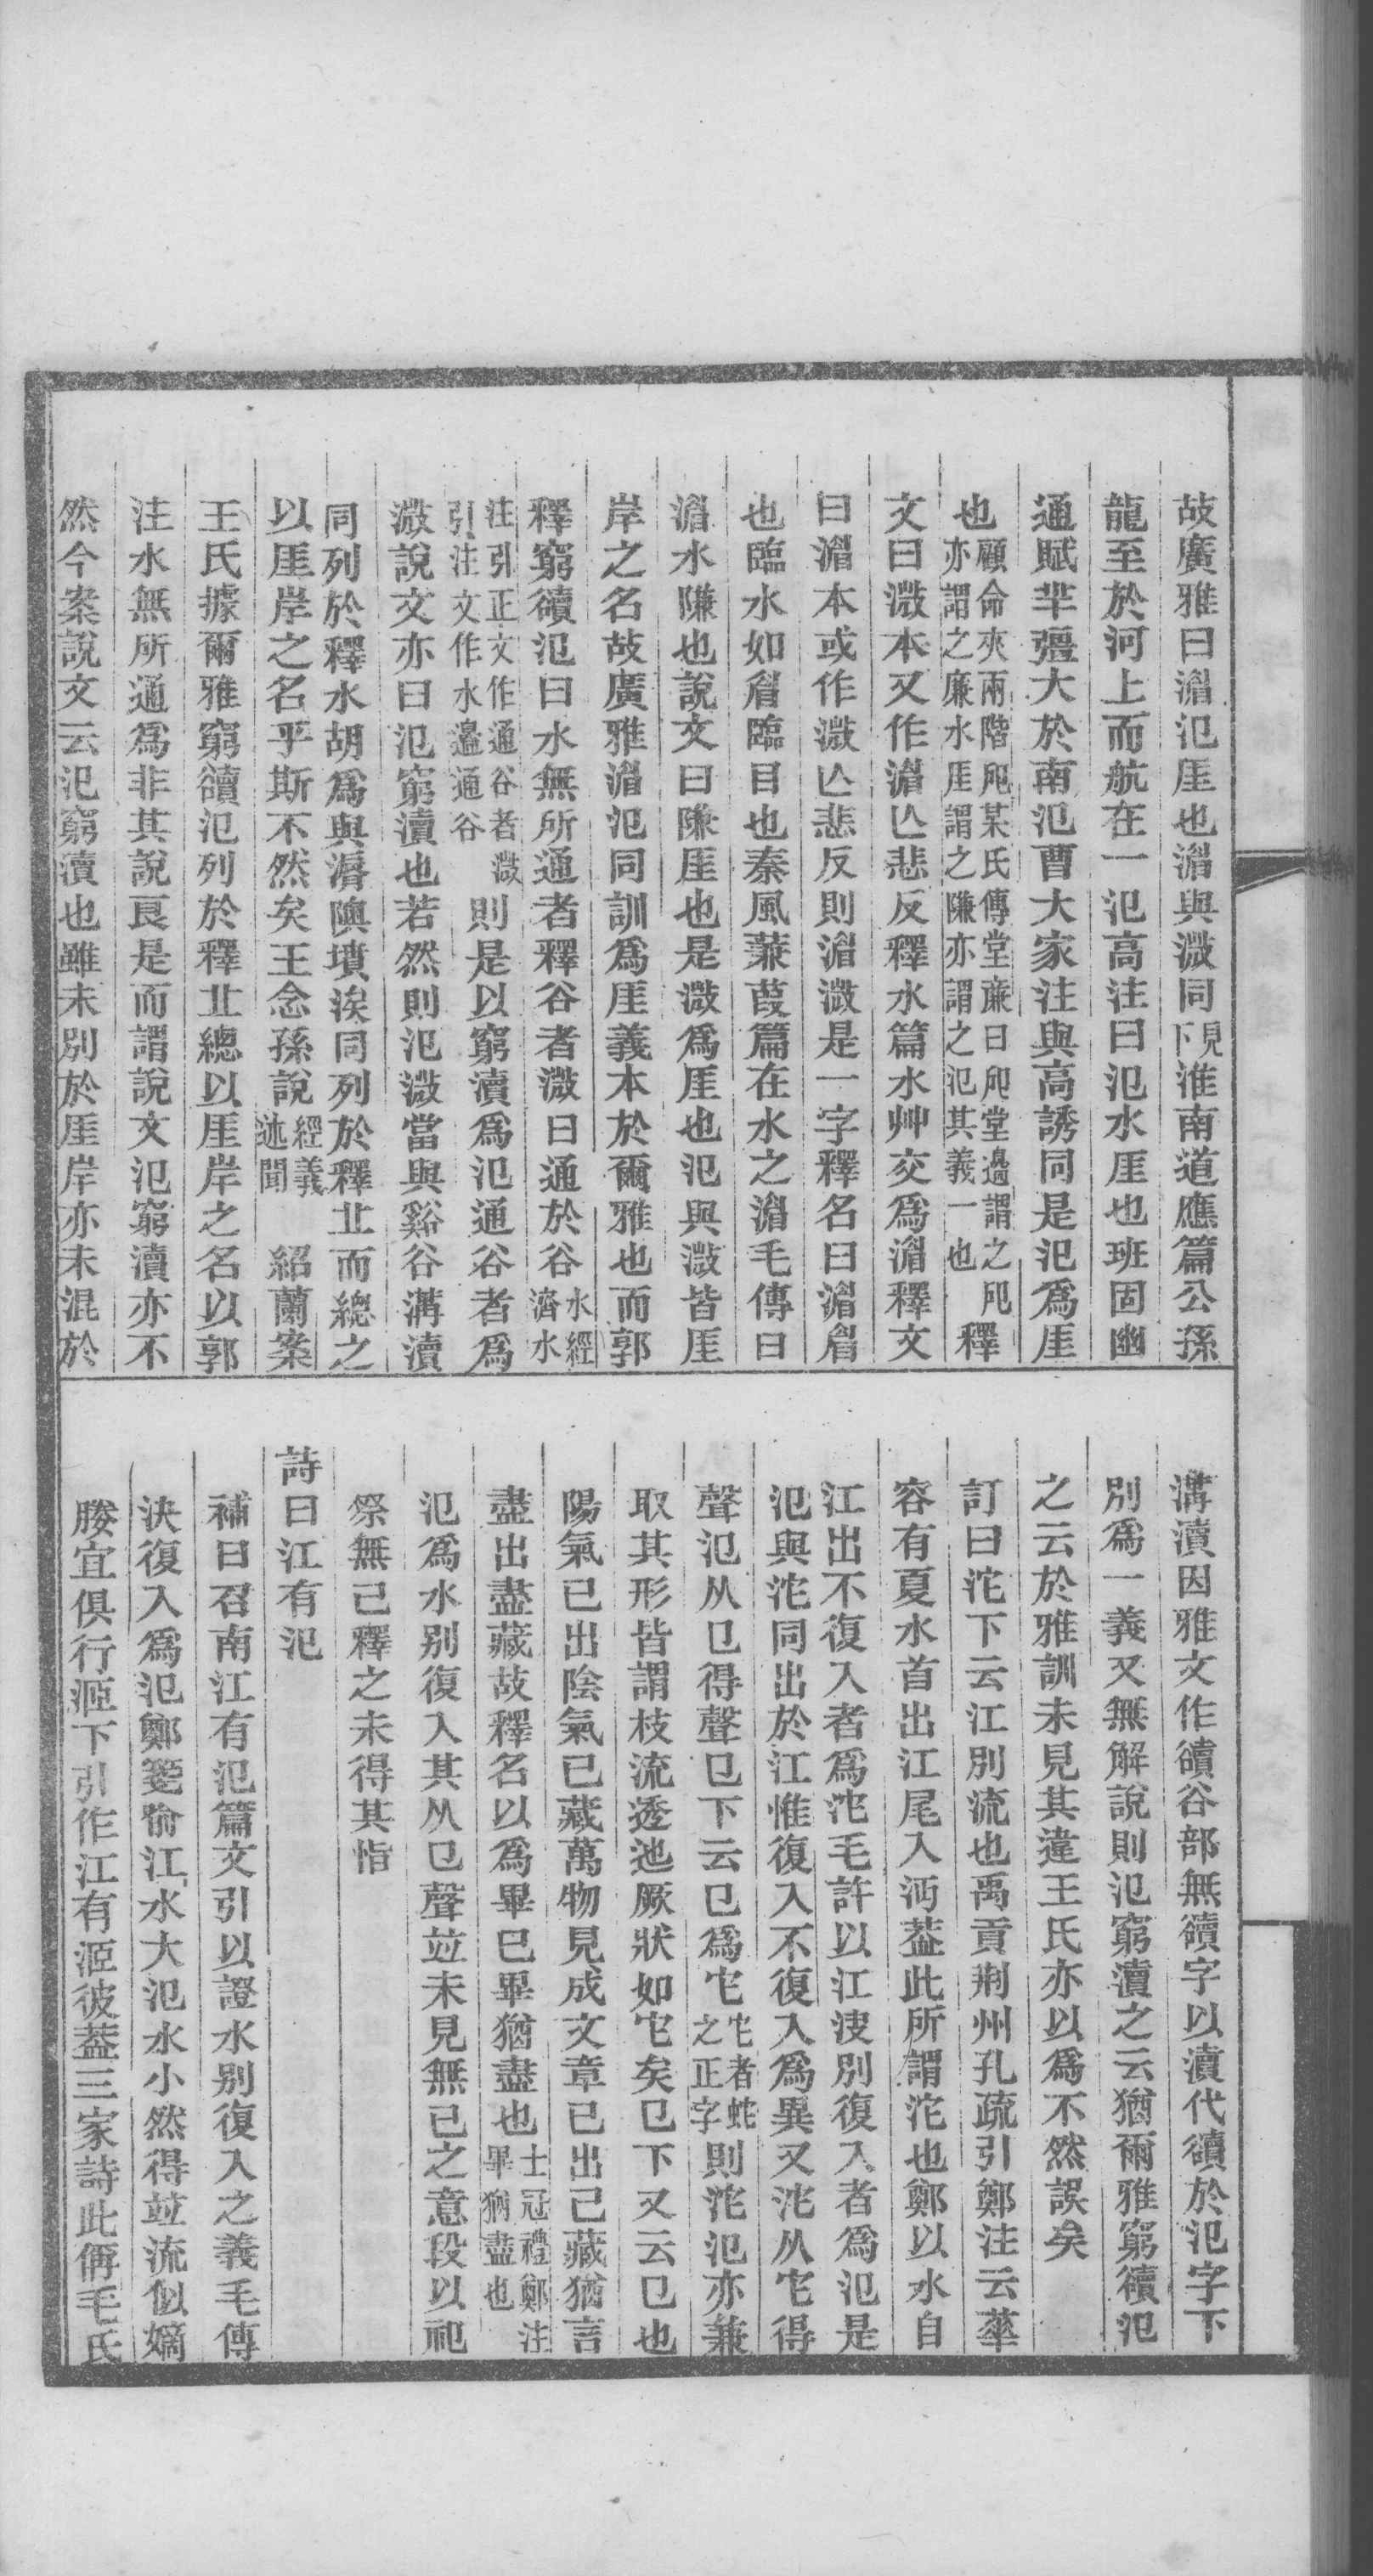 故廣雅曰湄氾厓也湄與溦同見下淮南道應篇公孫
龍至於河上而航在一氾高注曰氾水厓也班固幽
通賦芈彊大於南氾曹大家注與高誘同是氾爲厓
也顧命夾兩階戺某氏傳堂廉曰戺堂邊謂之戺亦謂之廉水厓謂之隒亦謂之氾其義一也釋
文曰溦本又作湄亾悲反釋水篇水艸交爲湄釋文
曰湄本或作溦亾悲反則湄溦是一字釋名曰湄眉
也臨水如眉臨目也秦風蒹葭篇在水之湄毛傳曰
湄水隒也說文曰隒厓也是溦爲厓也氾與溦皆厓
岸之名故廣雅湄氾同訓爲厓義本於爾雅也而郭
釋窮瀆氾曰水無所通者釋谷者溦曰通於谷水經濟水
注引正文作通谷者溦引注文作水邉通谷則是以窮瀆爲氾通谷者爲
溦說文亦曰氾窮瀆也若然則氾溦當與谿谷溝瀆
同列於釋水胡爲與漘隩墳涘同列於釋丠而總之
以厓岸之名乎斯不然矣王念孫說經義述聞 紹蘭案
王氏據爾雅窮瀆氾列於釋丠總以厓岸之名以郭
注水無所通爲非其說良是而謂說文氾窮瀆亦不
然今案說文云氾窮瀆也雖未別於厓岸亦未混於
溝瀆因雅文作䜪谷部無䜪字以瀆代䜪於氾字下
別爲一義又無解說則氾窮瀆之云猶爾雅窮䜪氾
之云於雅訓未見其違王氏亦以爲不然誤矣
訂曰沱下云江別流也禹貢荆州孔疏引鄭注云華
容有夏水首出江尾入沔葢此所謂沱也鄭以水自
江出不復入者爲沱毛許以江浚別復入者爲氾是
氾與沱同出於江惟復入不復入爲異又沱从它得
聲氾从巳得聲巳下云巳爲它它者蛇之正字則沱氾亦兼
取其形皆謂枝流逶迆厥狀如它矣巳下又云巳也
陽氣已出陰氣已藏萬物見成文章已出已藏猶言
盡出盡藏故釋名以爲畢已畢猶盡也士冠禮鄭注畢猶盡也
氾爲水别復入其从巳聲竝未見無已之意段以祀
祭無已釋之未得其恉
詩曰江有氾
補曰召南江有氾篇文引以證水别復入之義毛傳
決復入爲氾鄭箋喻江水大氾水小然得竝流似嫡
媵宜俱行洍下引作江有洍彼葢三家詩此偁毛氏